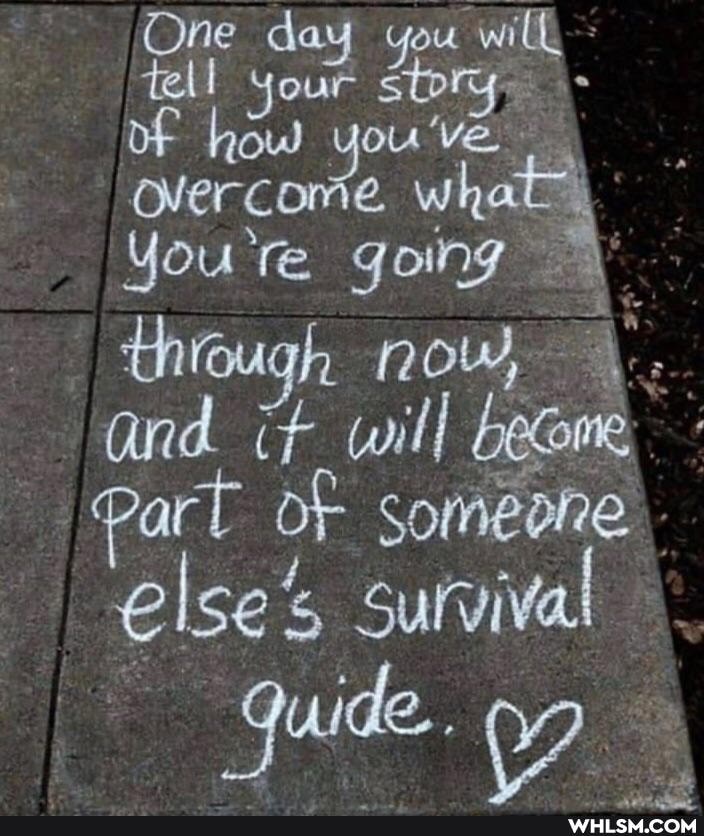 One day you will
tell your story
of how you've
overcome what
you're going
through now,
and it will become
part of someone
else's survival
guide.
WHLSM.COM